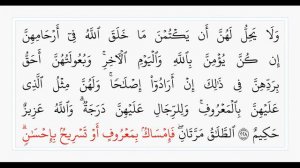 وَلَا يَحِلُّ لَهُنَّ أَن يَكْتُمْنَ مَا خَلَقَ ٱللَّهُ فِىٓ أَرْحَامِهِنَّ
إِن كُنَّ يُؤْمِنَّ بِٱللَّهِ وَٱلْيَوْمِ ٱلْءَاخِرِ ۚ وَبُعُولَتُهُنَّ أَحَقُّ
بِرَدِّهِنَّ فِى ذَٰلِكَ إِنْ أَرَادُوٓا۟ إِصْلَٰحًا ۚ وَلَهُنَّ مِثْلُ ٱلَّذِى
عَلَيْهِنَّ بِٱلْمَعْرُوفِ ۚ وَلِلرِّجَالِ عَلَيْهِنَّ دَرَجَةٌ ۗ وَٱللَّهُ عَزِيزٌ
حَكِيمٌ ٱلطَّلَٰقُ مَرَّتَانِ ۖ فَإِمْسَاكٌۢ بِمَعْرُوفٍ أَوْ تَسْرِيحٌۢ بِإِحْسَٰنٍ ۗ